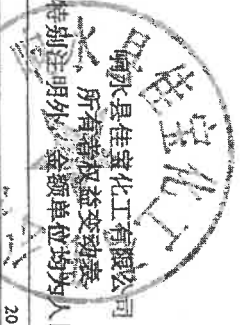 响水县佳宝化工有限公司
所有者权益变动表
特别注明外，金额单位均为人
20
佳宝化工